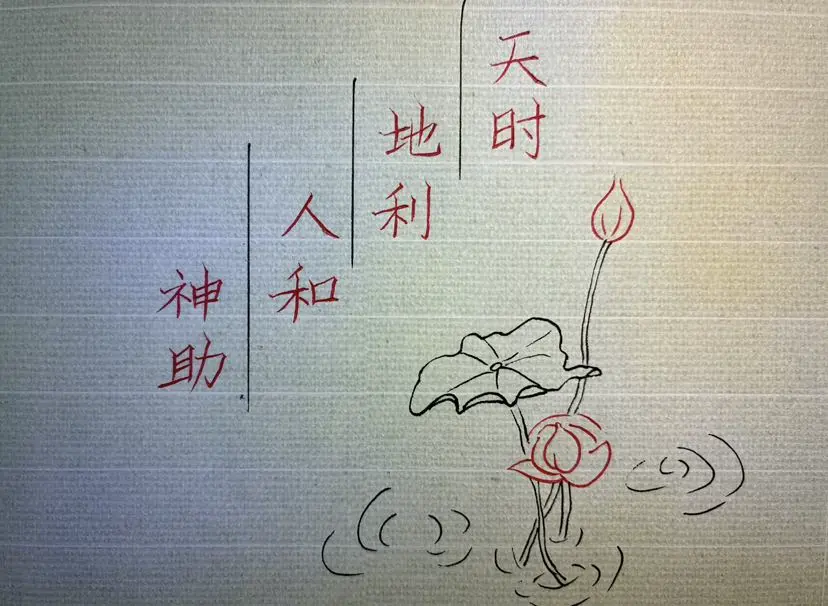 天时
地利
人和
神助